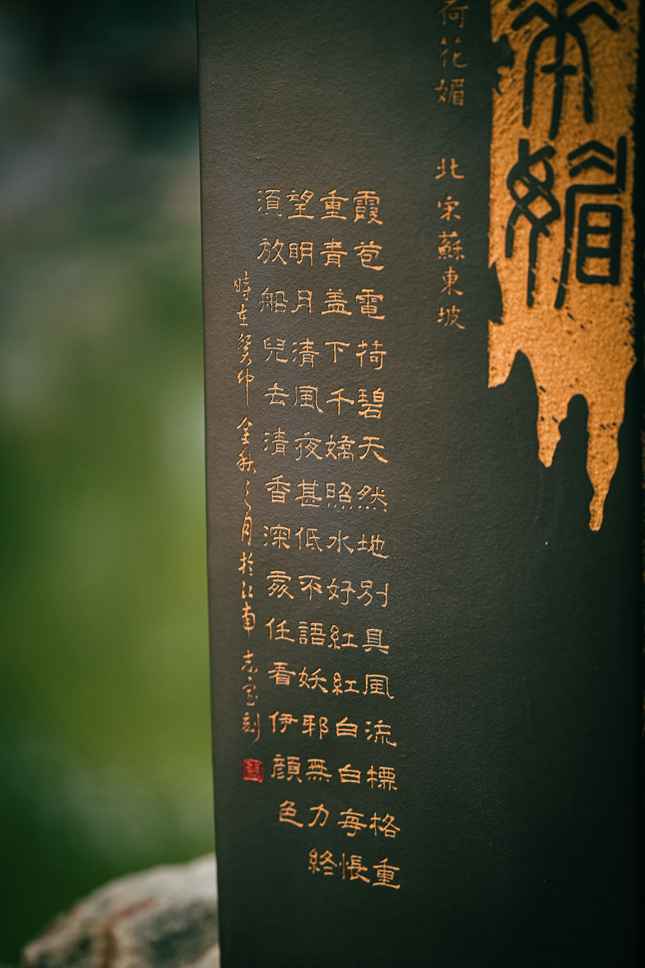 媚
荷花媚　北宋蘇東坡
霞苞電荷碧天然地別具風流標格重
重青盖下千嬌照水好紅紅白白每悵
望明月清風夜甚低不語妖邪無力終
須放船兒去清香深處任看伊顏色
時在癸卯金秋之月於江南